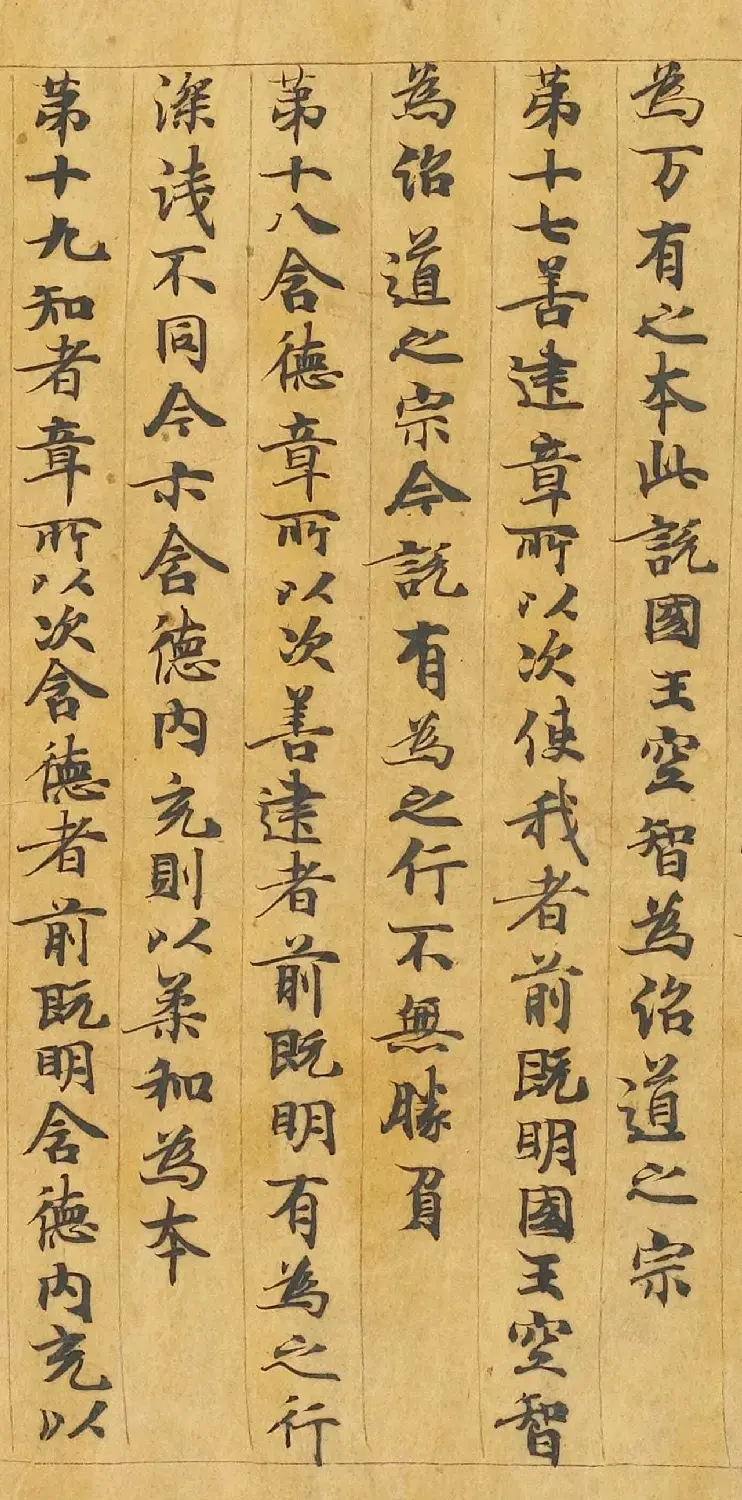 為万有之本此説國王空智為治道之宗
第十七善建章所以次使我者前既明國王空智
為治道之宗今説有為之行不無勝負
第十八含德章所以次善建者前既明有為之行
深淺不同今示含德內充則以柔和為本
第十九知者章所以次含德者前既明含德內充以